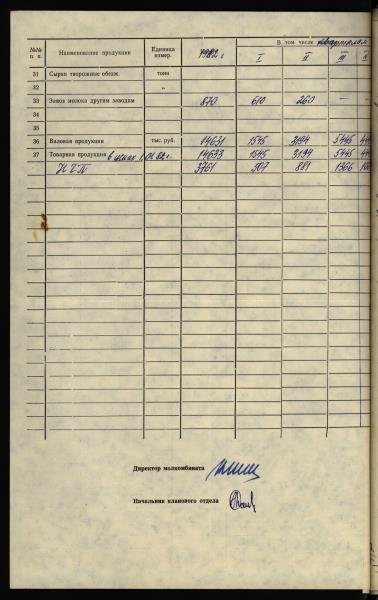 №№ п. п. Наименование продукции Единица измер. 1982 г В том числе кварталам
I II III IV
31 Сырки творожные обезж. тонн
32 „
33 Завоз молока другим заводам 870 610 260 —
34
35
36 Валовая продукция тыс. руб. 14631 1545 3194 5445
37 Товарная продукция в ценах 1.01.82 г. 14633 1545 3194 5445
НЧП 3761 507 881 1366
Директор молкомбината
Начальник планового отдела